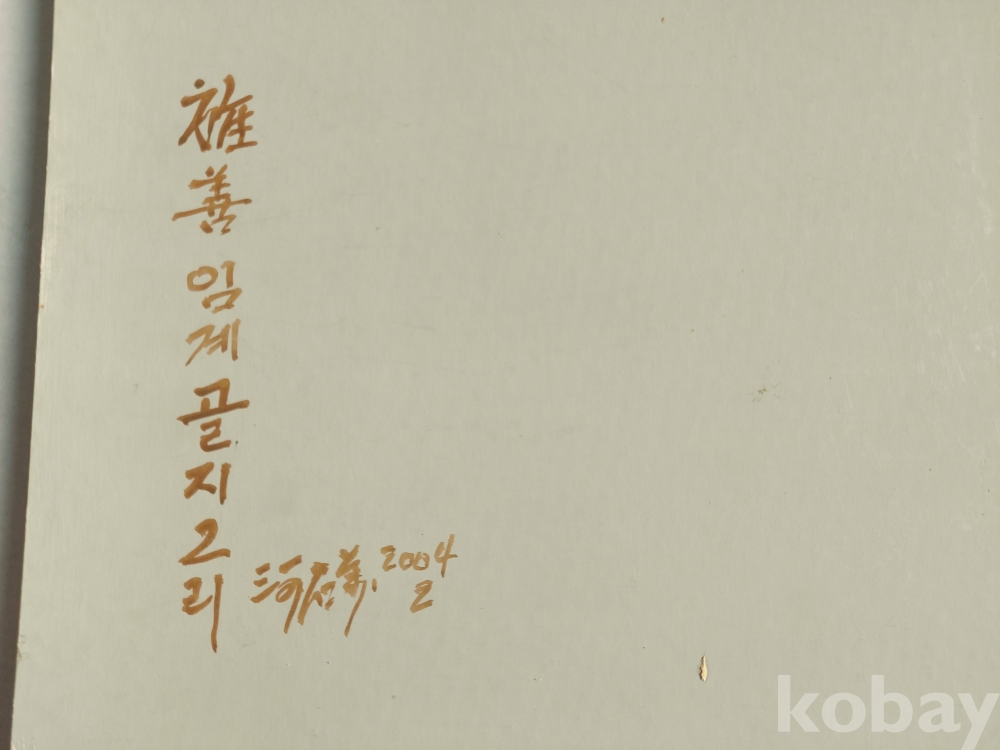 旌善임계골지2리
河 2004
2
kobay